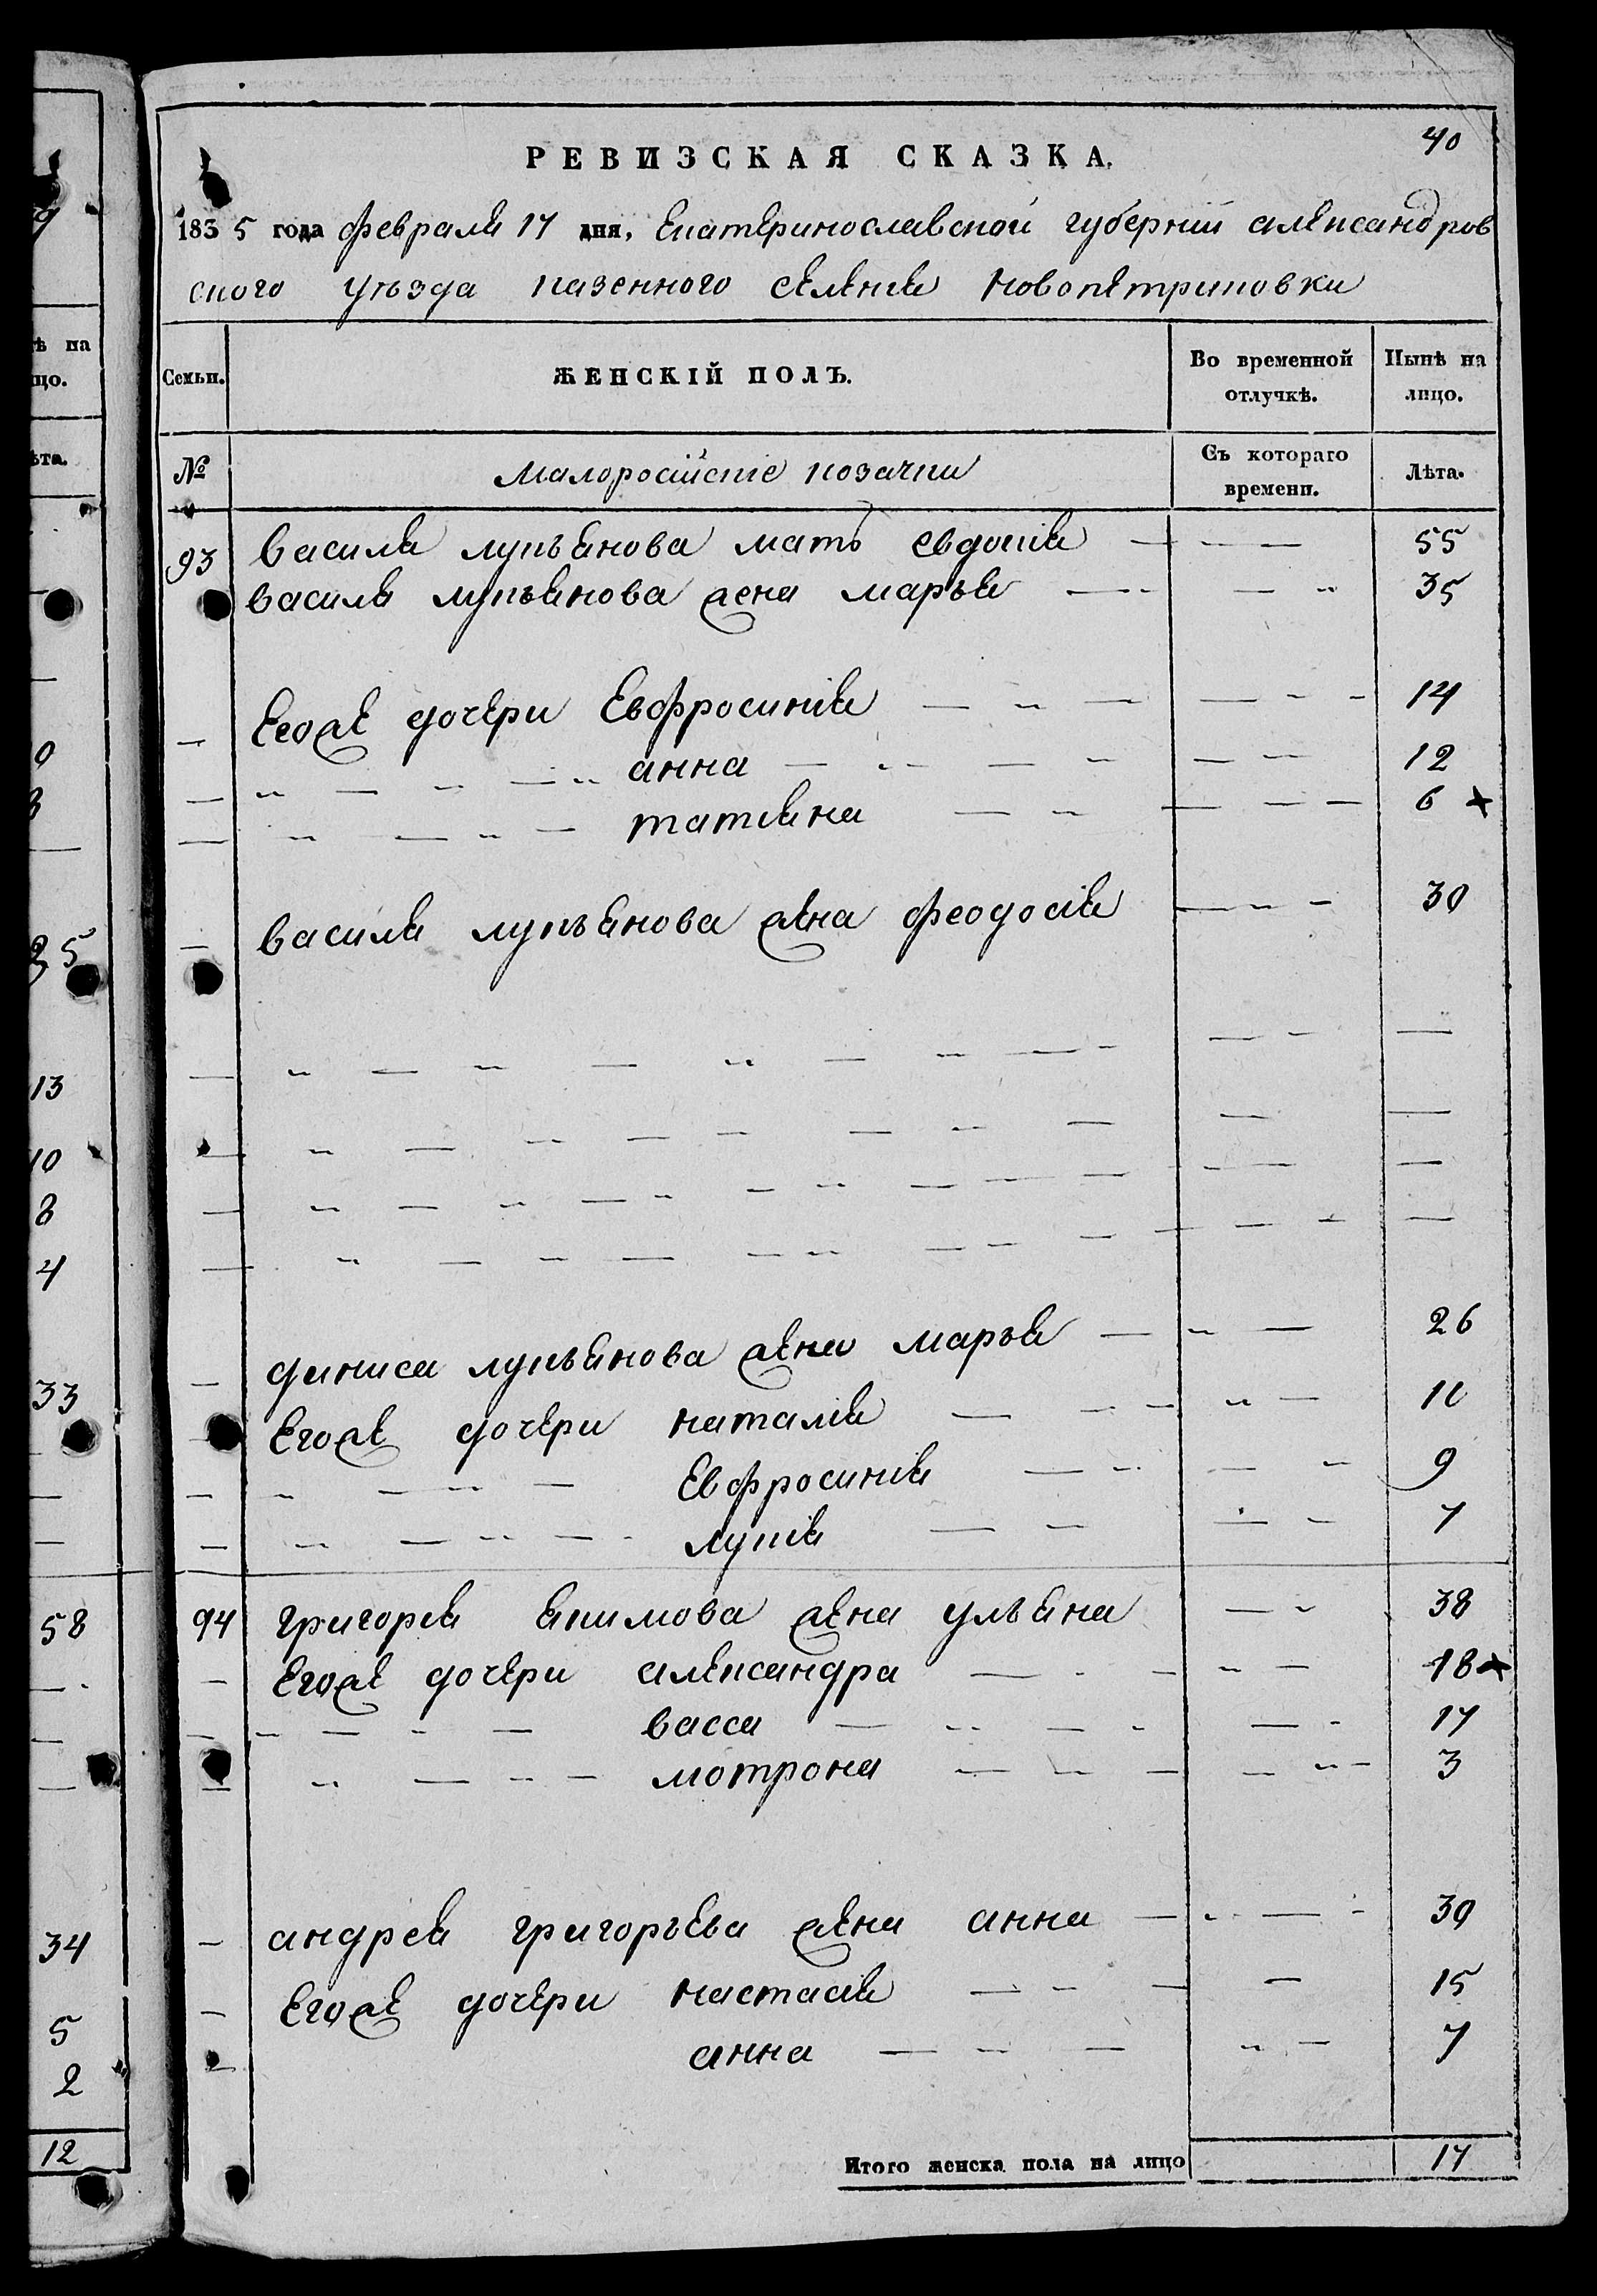 40
РЕВИЗСКАЯ СКАЗКА.
1835 года февраля 17 дня, Екатеринославской губерніи александров
ского уъзда казенного селенія Новопетриковки
Семьи. ЖЕНСКІЙ ПОЛЪ. Во временной отлучкѣ. Нынѣ на лицо.
№ Малоросійскіе козачки Съ котораго времени. Лѣта.
93 василя лукъянова мать евдокія 55
василя лукъянова жена марья 35
Егоже дочери Евфросинія 14
анна 12
татіяна 6 ×
василя лукъянова жена феодосія 30
дениса лукъянова жена марья 26
Егоже дочери наталія 10
Евфросинія 9
лукія 7
94 григорія якимова жена ульяна 38
Егоже дочери александра 18 ×
васса 17
мотрона 3
андрея григорьева жена анна 30
Егоже дочери настасія 15
анна 7
Итого женска пола на лицо 17
ѣ на
цо.
ѣта.
25
13
10
8
4
33
58
34
5
2
12